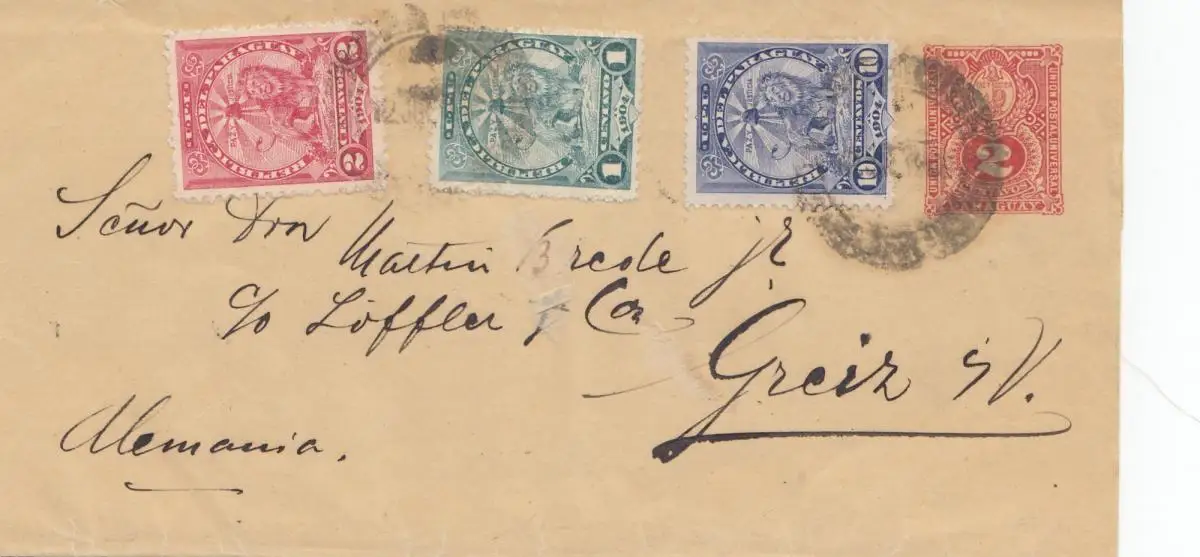 U.P.U
REPUBLICA DEL PARAGUAY
PAZ Y JUSTICIA
2 CENTAVOS 1904 2
U.P.U
REPUBLICA DEL PARAGUAY
PAZ
1 CENTAVO 1904 1
U.P.U
REPUBLICA DEL PARAGUAY
PAZ Y JUSTICIA
10 CENTAVOS 1904 10
UNION POSTAL UNIVERSAL
UNION POSTAL UNIVERSAL
2
PARAGUAY
Señor Don
Martin Brede jr
c/o Löffler & Co
Greiz
Alemania.